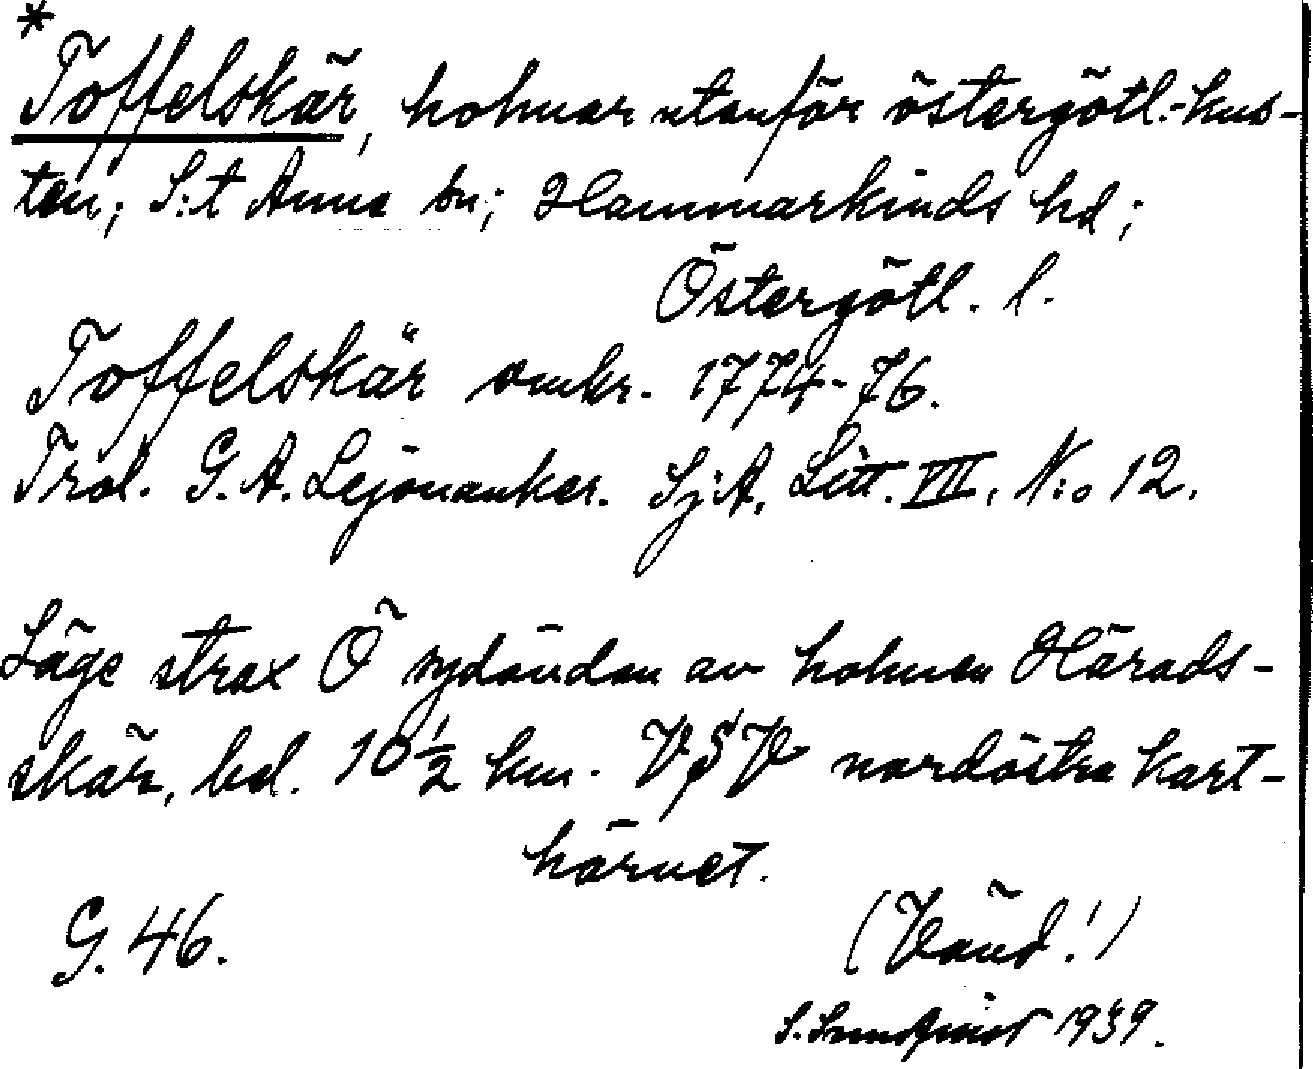 *
Toffelskär, holmar utanför östergötl.-kus-
ten; S:t Anna sn; Hammarkinds hd;
Östergötl. l.
Toffelskär omkr. 1774-76.
Trol. G. A. Lejonanker. Sj.A. Litt. VII. N:o 12.
Läge strax Ö sydändan av holmen Härads-
skär, bel. 10 1/2 km. VSV nordöstra kart-
hörnet.
G. 46.
(Vänd!)
S. Sundqvist 1939.